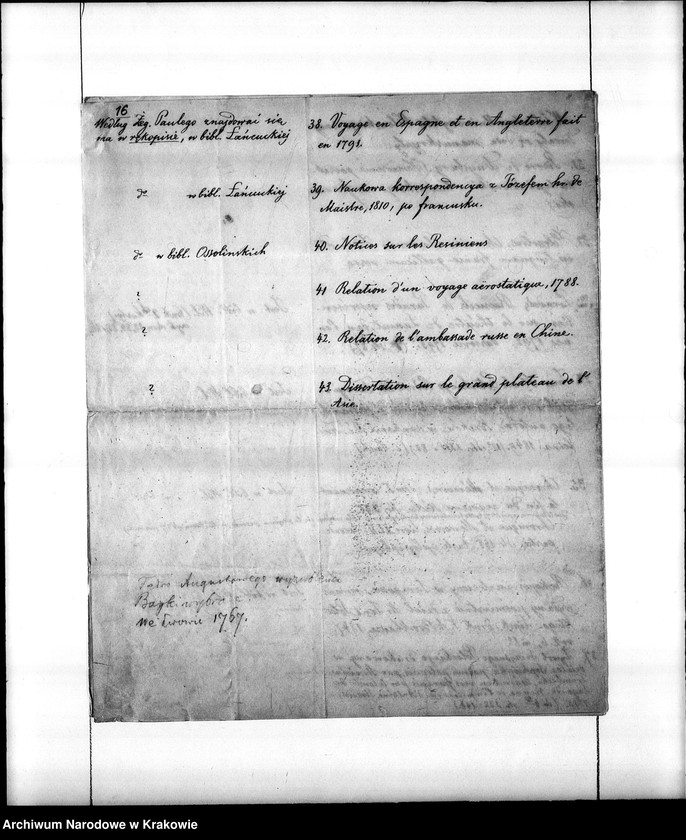 16
Według Żeg. Paulego znajdować się
ma w rękopisie, w bibl. Łańcuckiej
38. Voyage en Espagne et en Angleterre fait
en 1791.
do w bibl. Łańcuckiej
39. Naukowa korrespondencya z Józefem hr. de
Maistre, 1810, po francusku.
do w bibl. Ossolinskich
40. Notices sur les Resiniens
?
41 Relation d'un voyage aërostatique, 1788.
?
42. Relation de l'ambassade russe en Chine.
?
43. Dissertation sur le grand plateau de l'
Asie.
Augustowego
we Lwowie 1767.
Archiwum Narodowe w Krakowie